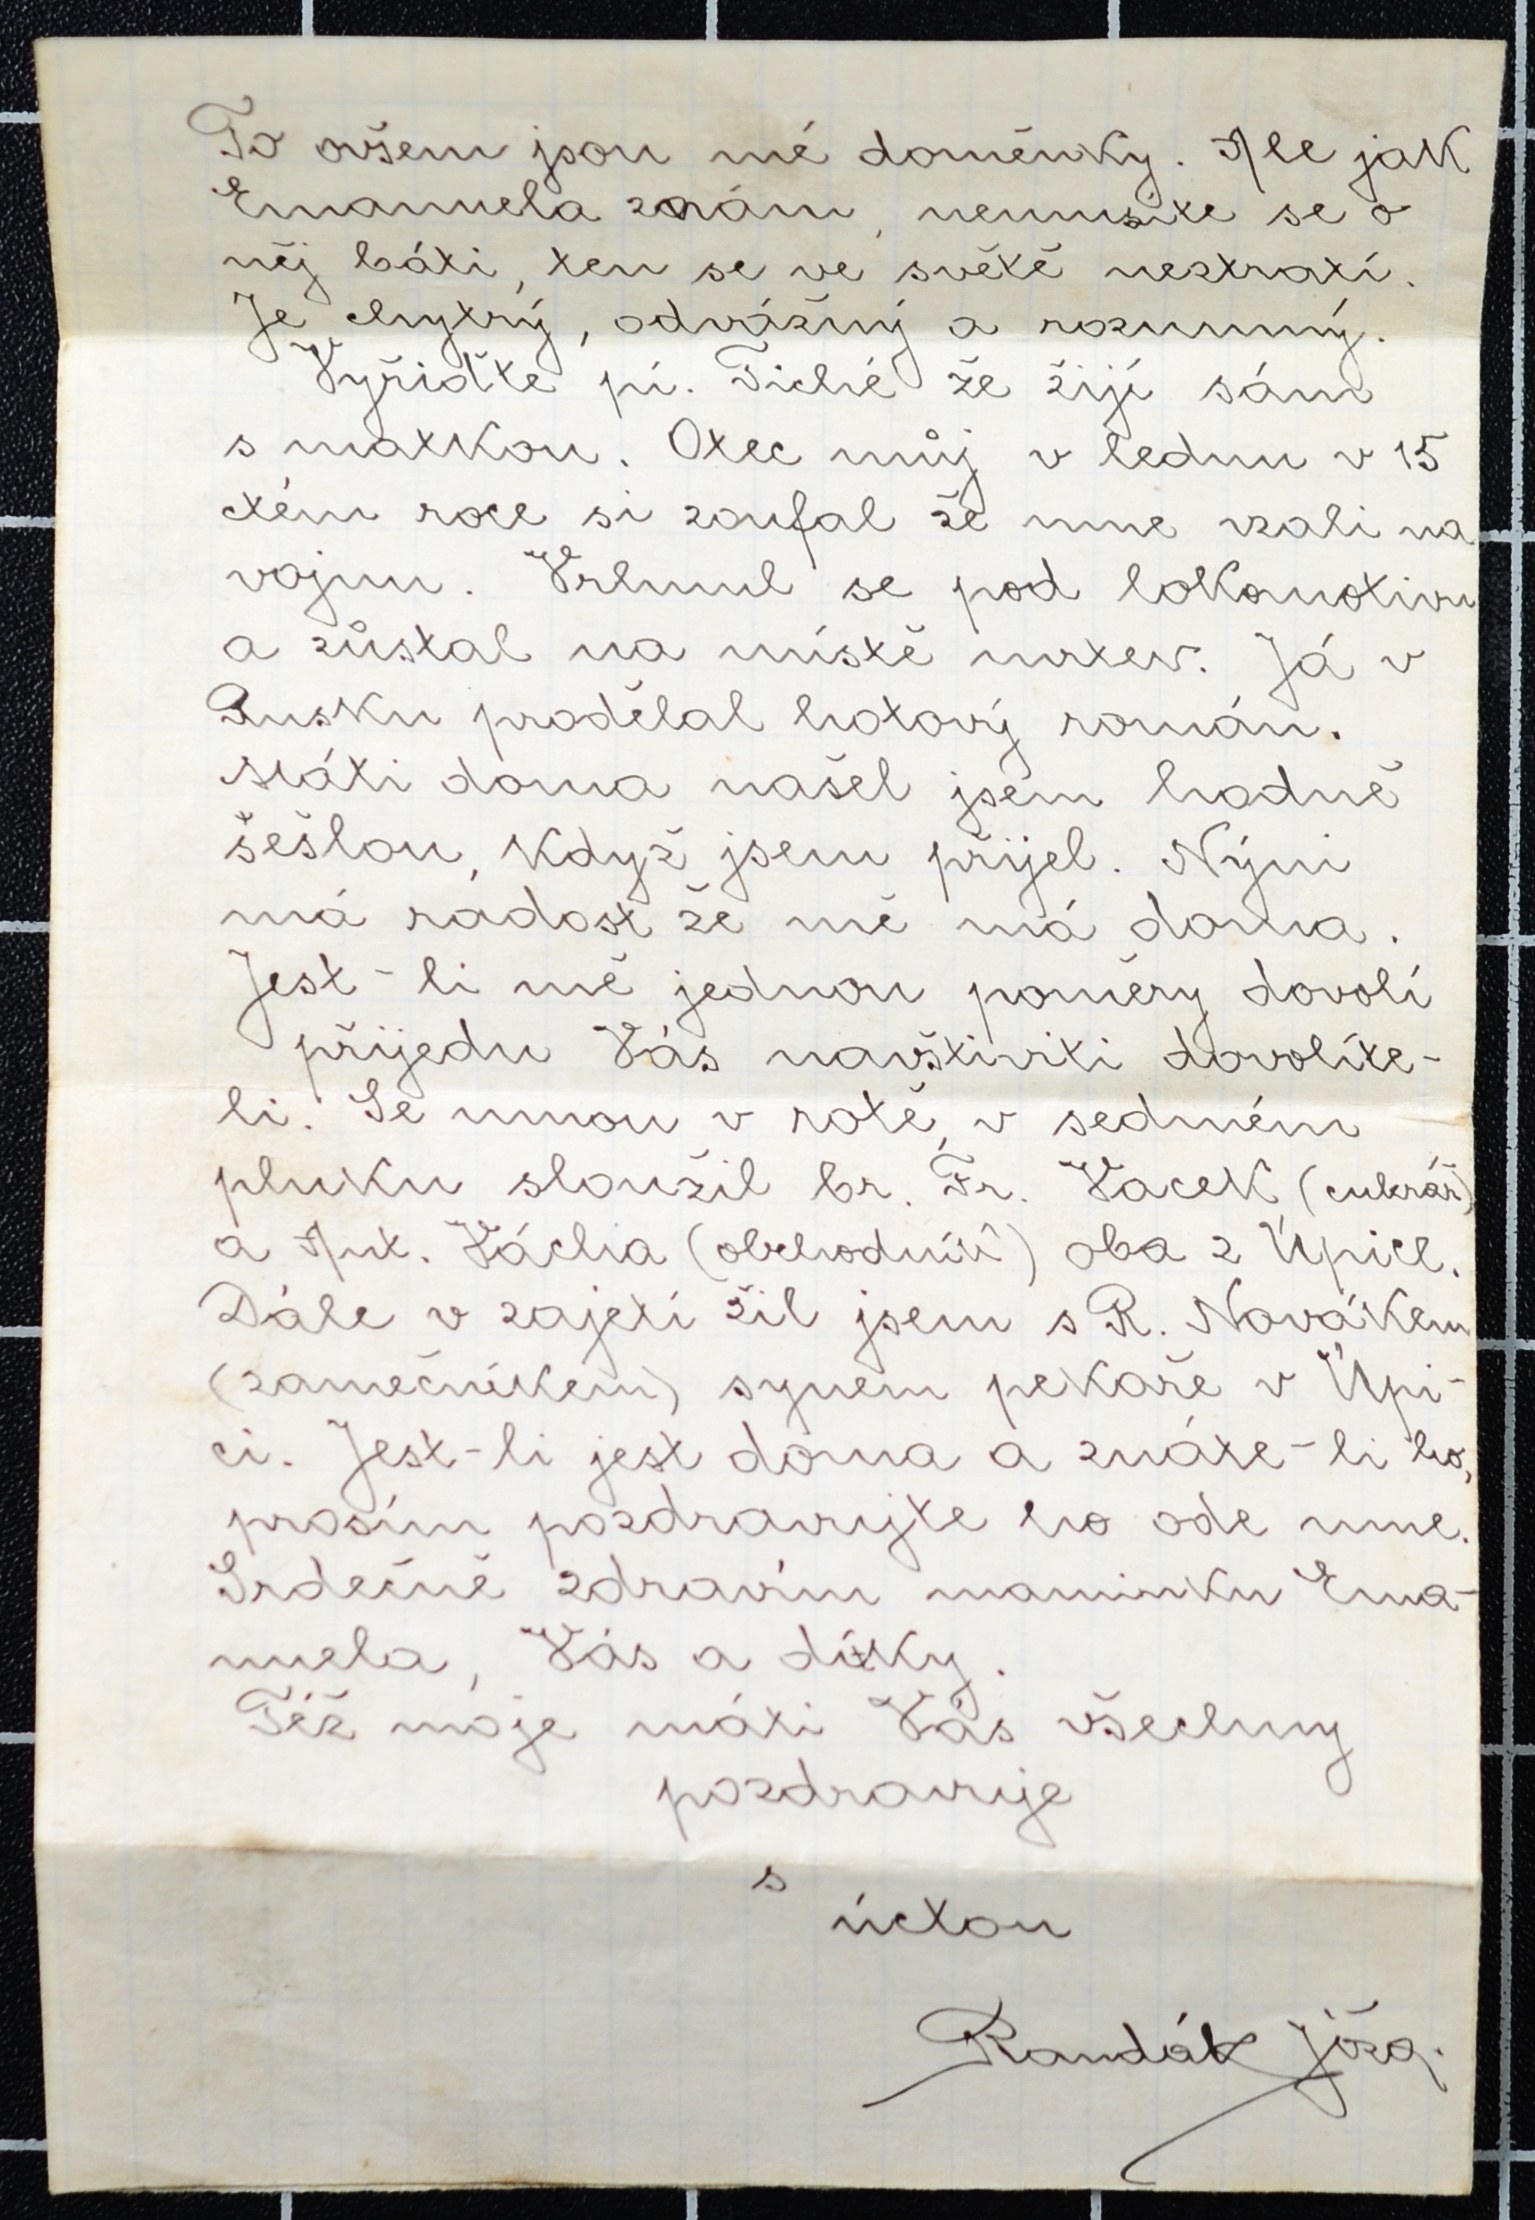 To ovšem jsou mé doměnky. Ale jak
Emanuela znám, nemusíte se o
něj báti, ten se ve světě neztratí.
Je chytrý, odvážný a rozumný.
Vyřiďte pí. Tiché že žiji sám
s matkou. Otec můj v lednu v 15
ctém roce si zoufal že mne vzali na
vojnu. Vrhnul se pod lokomotivu
a zůstal na místě mrtev. Já v
Rusku prodělal hotový román.
Máti doma našel jsem hodně
sešlou, když jsem přijel. Nýni
má radost že mě má doma.
Jest-li mě jednou poměry dovolí
přijedu Vás navštiviti dovolíte-
li. Se mnou v rotě, v sedmém
pluku sloužil br. Fr. Vacek (cukrář)
a Ant. Vácha (obchodník) oba z Úpice.
Dále v zajetí žil jsem s R. Novákem
(zamečníkem) synem pekaře v Úpi-
ci. Jest-li jest doma a znáte-li ho,
prosím pozdravujte ho ode mne.
Srdečně zdravím maminku Ema-
nuela, Vás a dítky.
Též moje máti Vás všechny
pozdravuje
s
úctou
Randák Jóža.